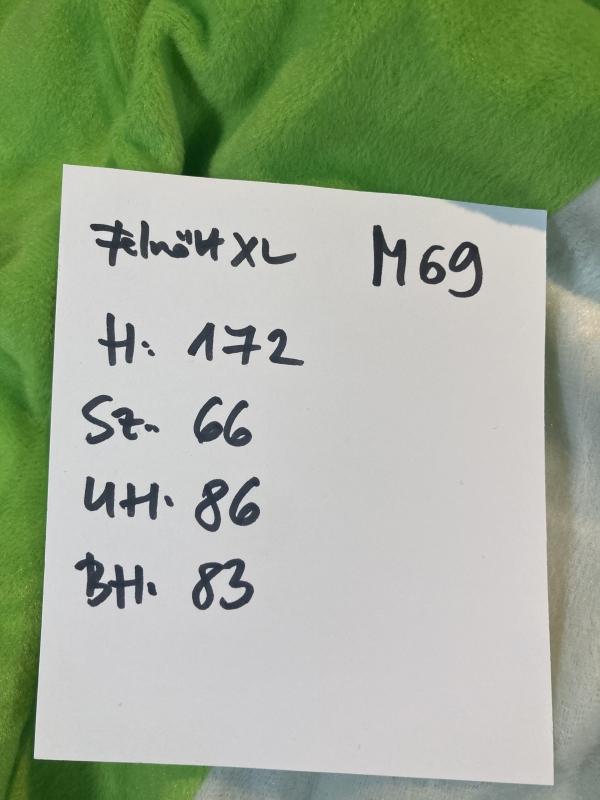 Felnőtt XL M69
H: 172
Sz. 66
UH. 86
BH. 83